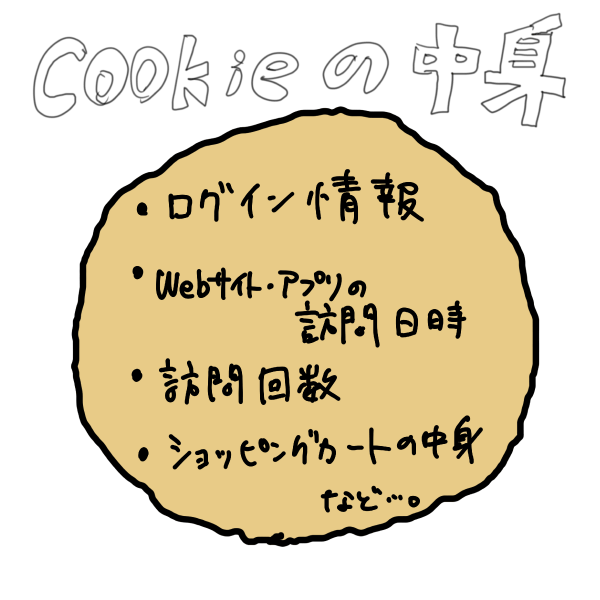 Cookieの中身
・ログイン情報
・Webサイト・アプリの
訪問日時
・訪問回数
・ショッピングカートの中身
など…。